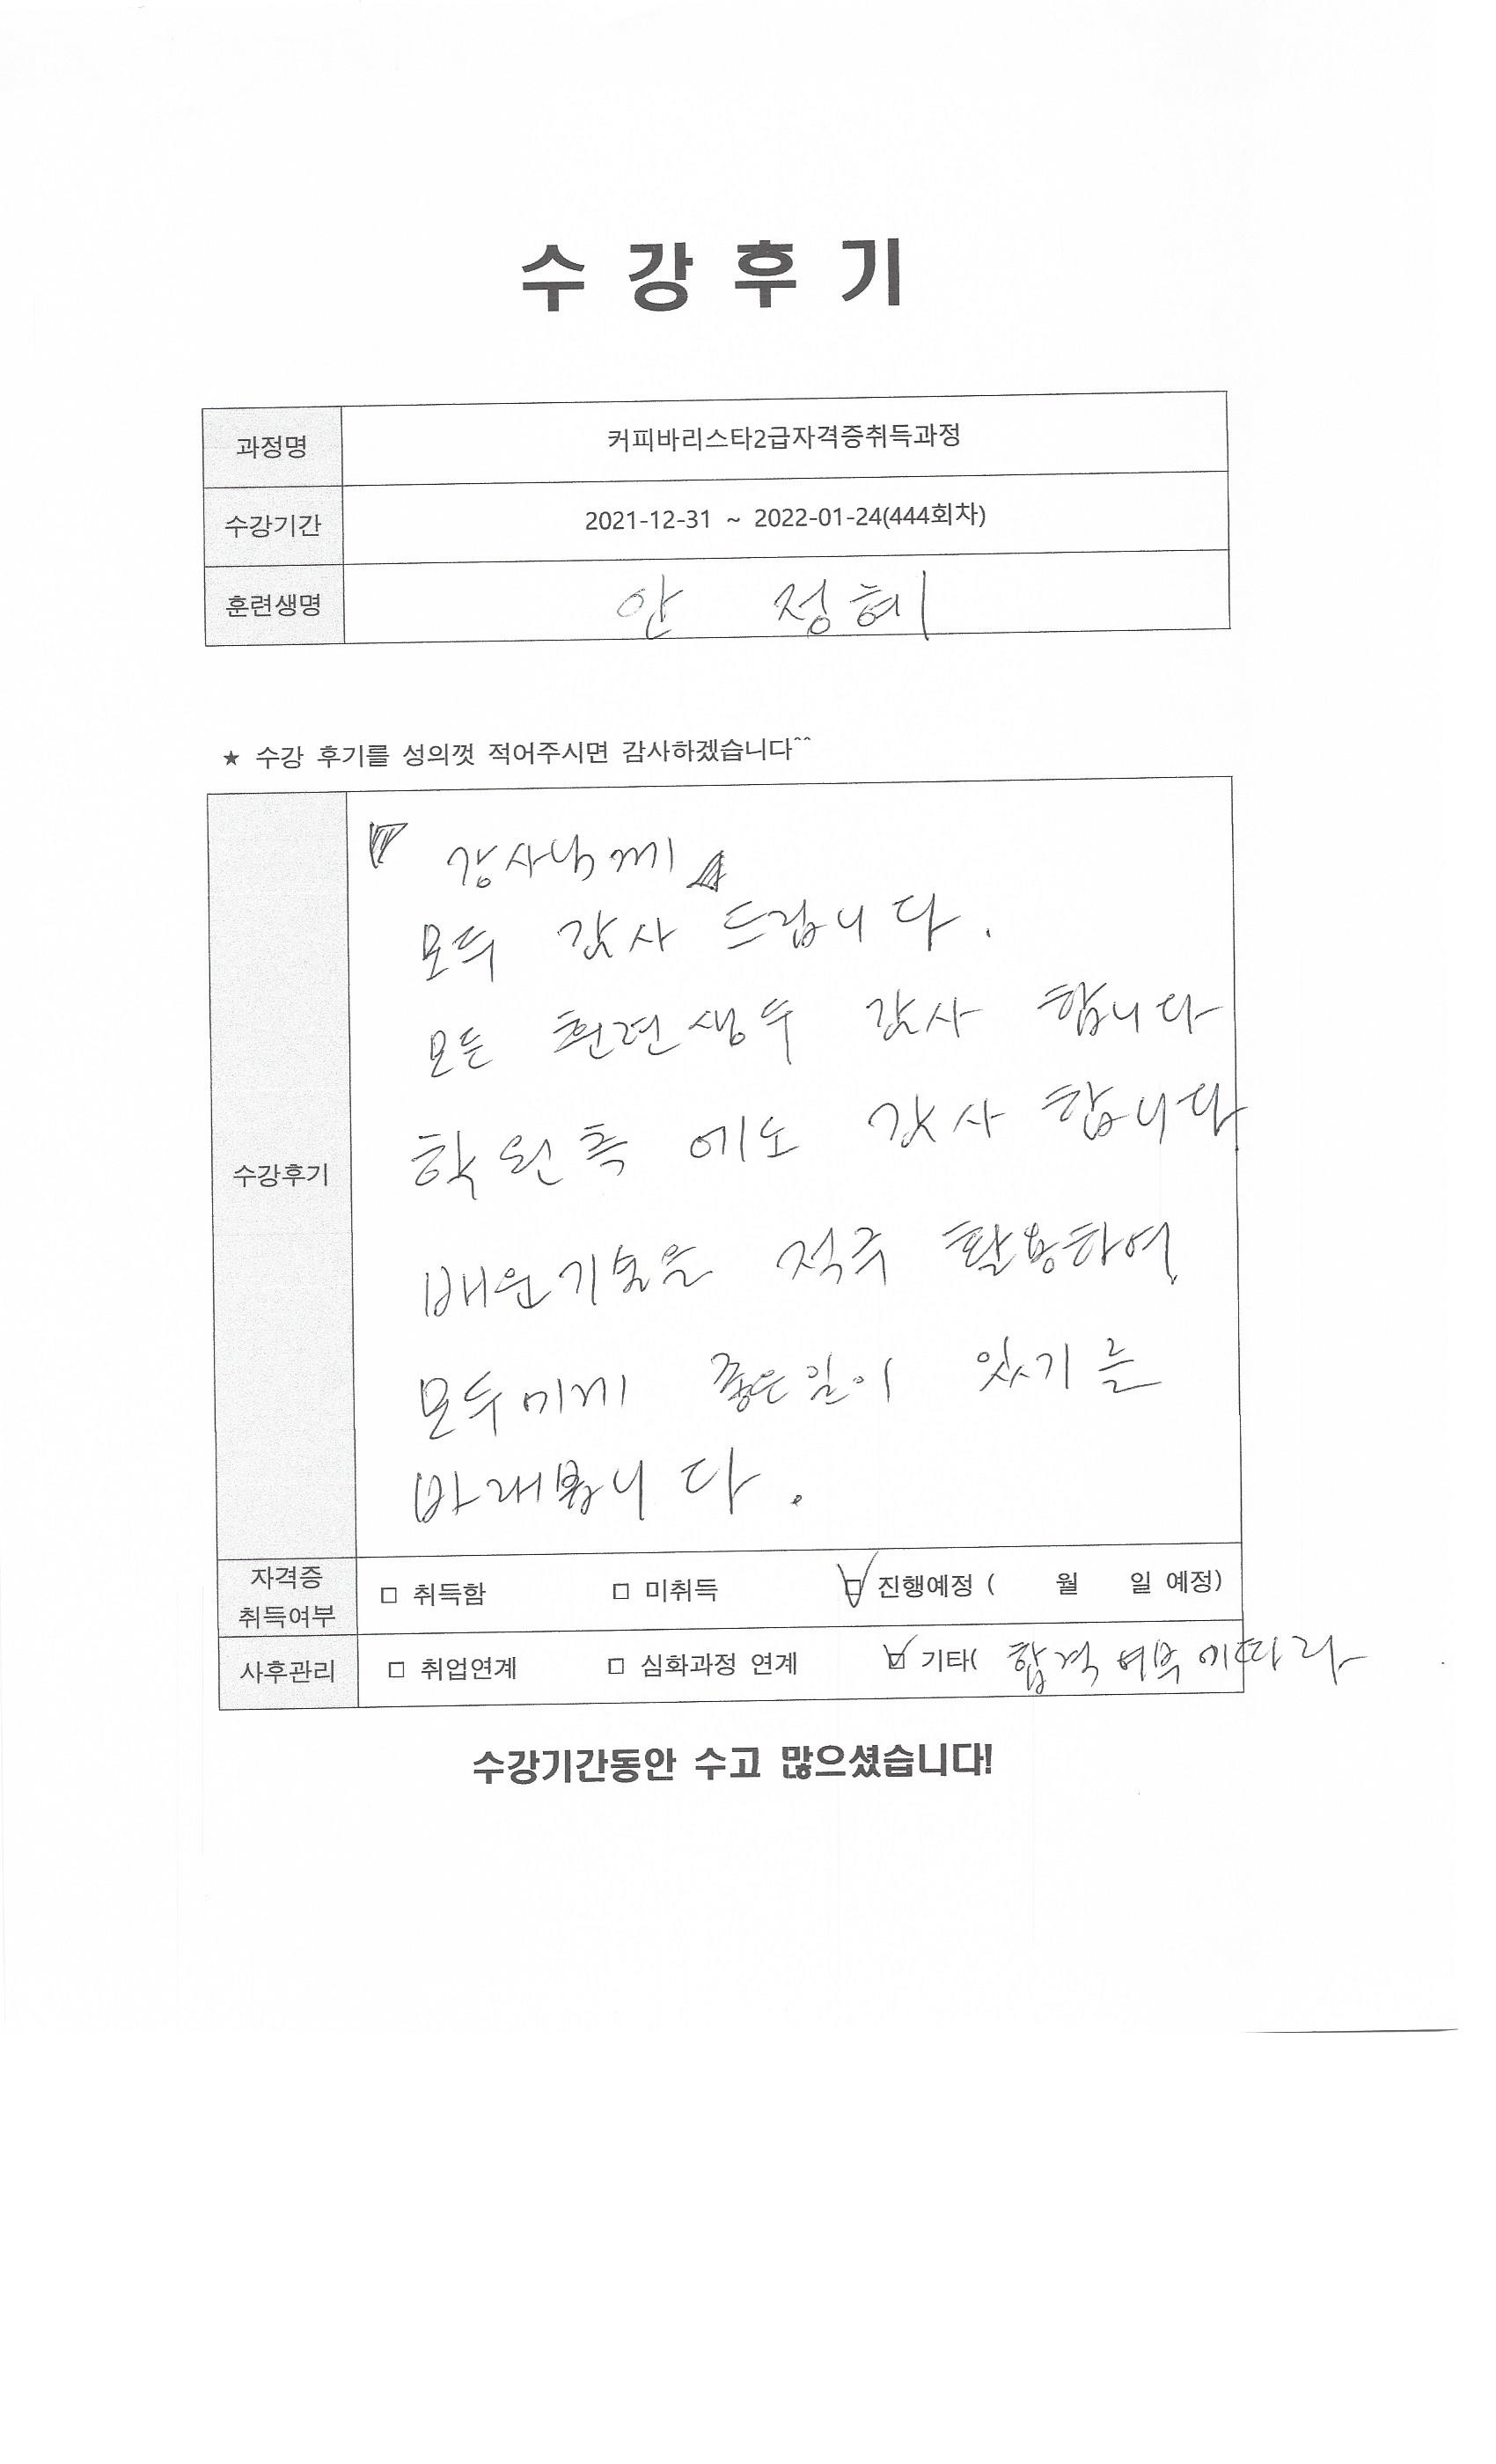 수 강 후 기
과정명 커피바리스타2급자격증취득과정
수강기간 2021-12-31 ~ 2022-01-24(444회차)
훈련생명 안 정혜
★ 수강 후기를 성의껏 적어주시면 감사하겠습니다^^
수강후기
『 강사님께 』
모두 감사 드립니다.
모든 훈련생두 감사 합니다
학원측 에도 감사 합니다
배운기술을 적극 활용하여
모두에게 좋은일이 있기를
바래봅니다.
자격증 취득여부 □ 취득함 □ 미취득 ☑ 진행예정 ( 월 일 예정)
사후관리 □ 취업연계 □ 심화과정 연계 ☑ 기타( 합격 여부에따라
수강기간동안 수고 많으셨습니다!